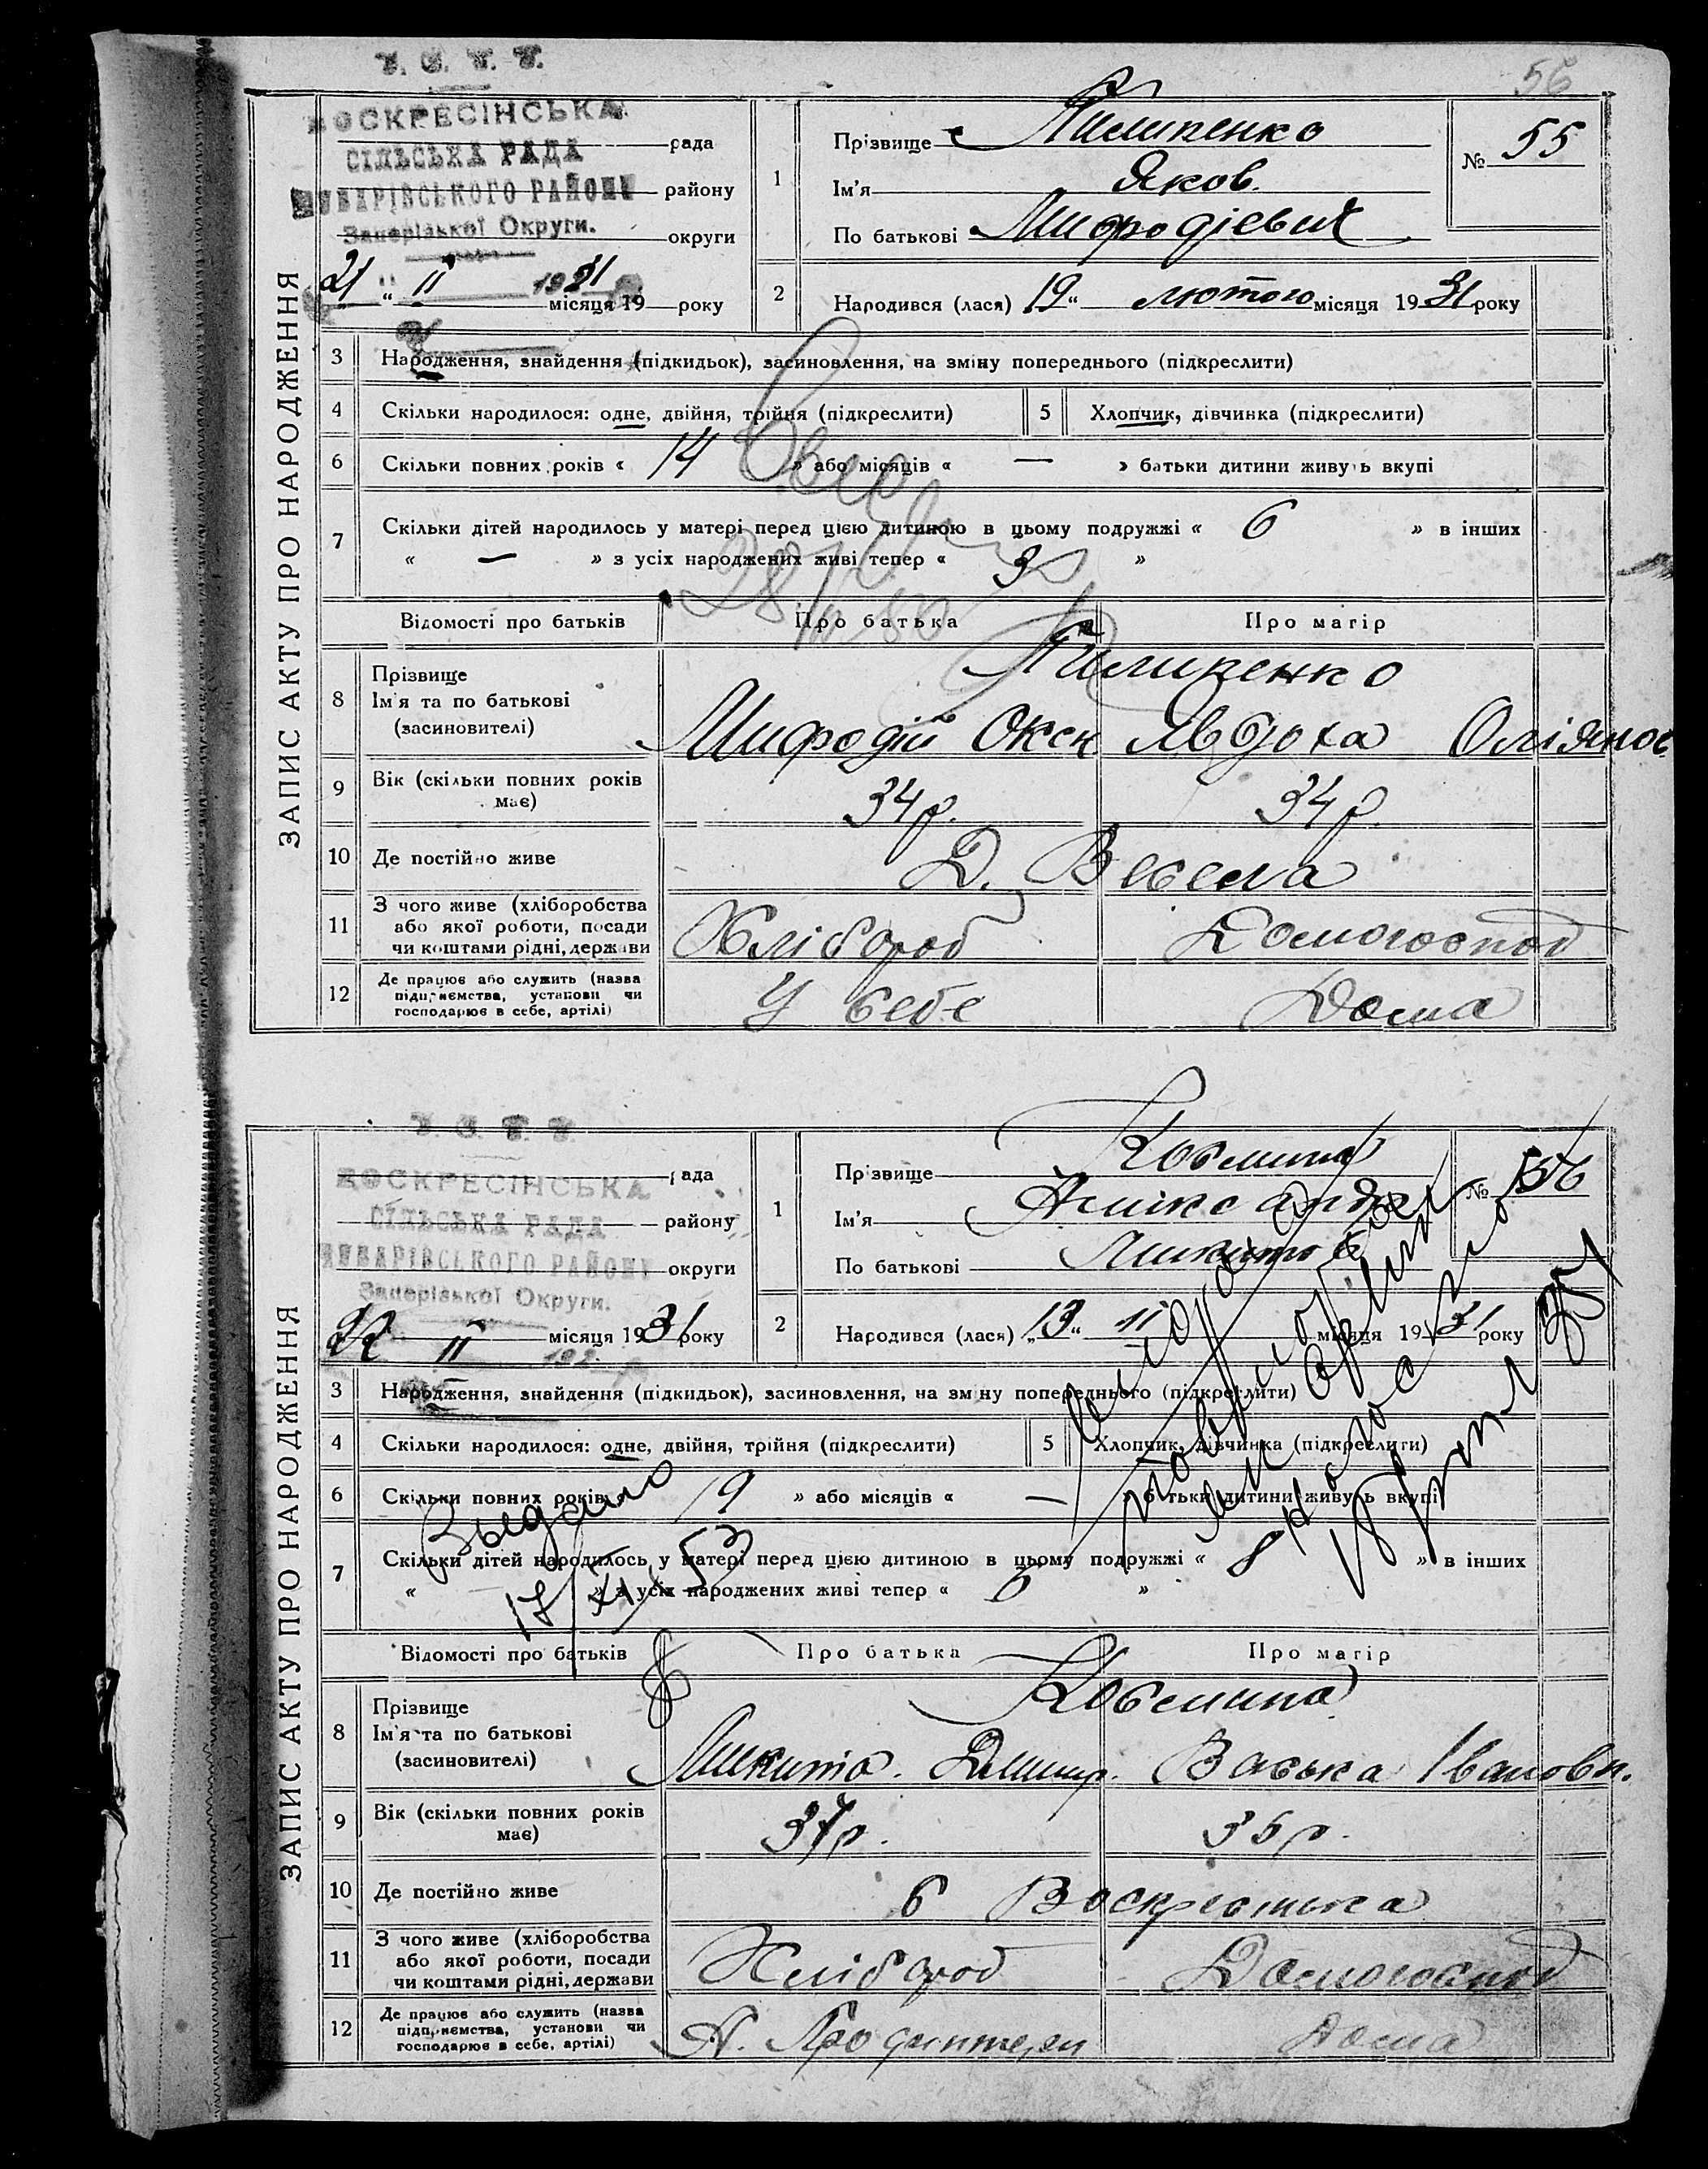 56
У. С. Р. Р.
ВОСКРЕСІНСЬКА рада
СІЛЬСЬКА РАДА
ЧУБАРІВСЬКОГО РАЙОНУ району
Запорізької Округи. округи
21 " II 1931 місяця 19 року
ЗАПИС АКТУ ПРО НАРОДЖЕННЯ
1 Прізвище Пилипенко
Ім'я Яков.
По батькові Мифодієвич
№ 55
2 Народився (лася) 19 " лютого місяця 1931 року
3 Народження, знайдення (підкидьок), засиновлення, на зміну попереднього (підкреслити)
4 Скільки народилося: одне, двійня, трійня (підкреслити) 5 Хлопчик, дівчинка (підкреслити)
6 Скільки повних років « 14 » або місяців « — » батьки дитини живуть вкупі
7 Скільки дітей народилось у матері перед цією дитиною в цьому подружжі « 6 » в інших
« — » з усіх народжених живі тепер « 3 »
Відомості про батьків Про батька Про матір
8 Прізвище Ім'я та по батькові (засновителі) Пилипенко
Мифодій Оксен Явдоха Оліянов
9 Вік (скільки повних років має) 34 р. 34 р.
10 Де постійно живе Д. Весела
11 З чого живе (хліборобства або якої роботи, посади чи коштами рідні, держави Хлібороб Домогоспод
12 Де працює або служить (назва підприємства, установи чи господарює в себе, артілі) У себе Дома
У. С. Р. Р.
ВОСКРЕСІНСЬКА рада
СІЛЬСЬКА РАДА району
ЧУБАРІВСЬКОГО РАЙОНУ округи
Запорізької Округи.
22 II місяця 1931 року
ЗАПИС АКТУ ПРО НАРОДЖЕННЯ
1 Прізвище
Ім'я
По батькові Микитов
№ 56
2 Народився (лася) „13" II місяця 1931 року
3 Народження, знайдення (підкидьок), засиновлення, на зміну попереднього (підкреслити)
4 Скільки народилося: одне, двійня, трійня (підкреслити) 5 Хлопчик, дівчинка (підкреслити)
6 Скільки повних років « 19 » або місяців « — » батьки дитини живуть вкупі
7 Скільки дітей народилось у матері перед цією дитиною в цьому подружжі « 8 » в інших
« » з усіх народжених живі тепер « 6 »
Выдано
17/XI 53
Відомості про батьків Про батька Про матір
8 Прізвище Ім'я та по батькові (засиновителі)
Микита. Дмитр. Васька Івановн.
9 Вік (скільки повних років має) 37 р. 35 р.
10 Де постійно живе с Воскресенька
11 З чого живе (хліборобства або якої роботи, посади чи коштами рідні, держави Хлібороб Домогоспод
12 Де працює або служить (назва підприємства, установи чи господарює в себе, артілі) Дома